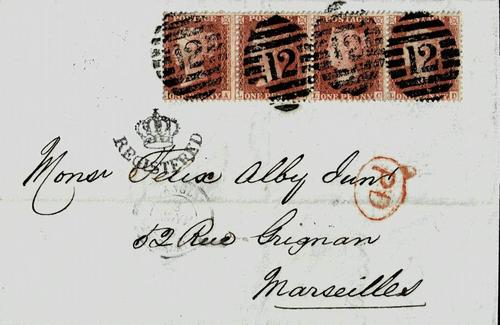 POSTAGE POSTAGE POSTAGE POSTAGE
12 12 12 12
ONE PENNY A ONE PENNY ONE PENNY C ONE PENNY D
REGISTERED
Monsr Felix Alby Junr
PD
52 Rue Grignan
Marseilles